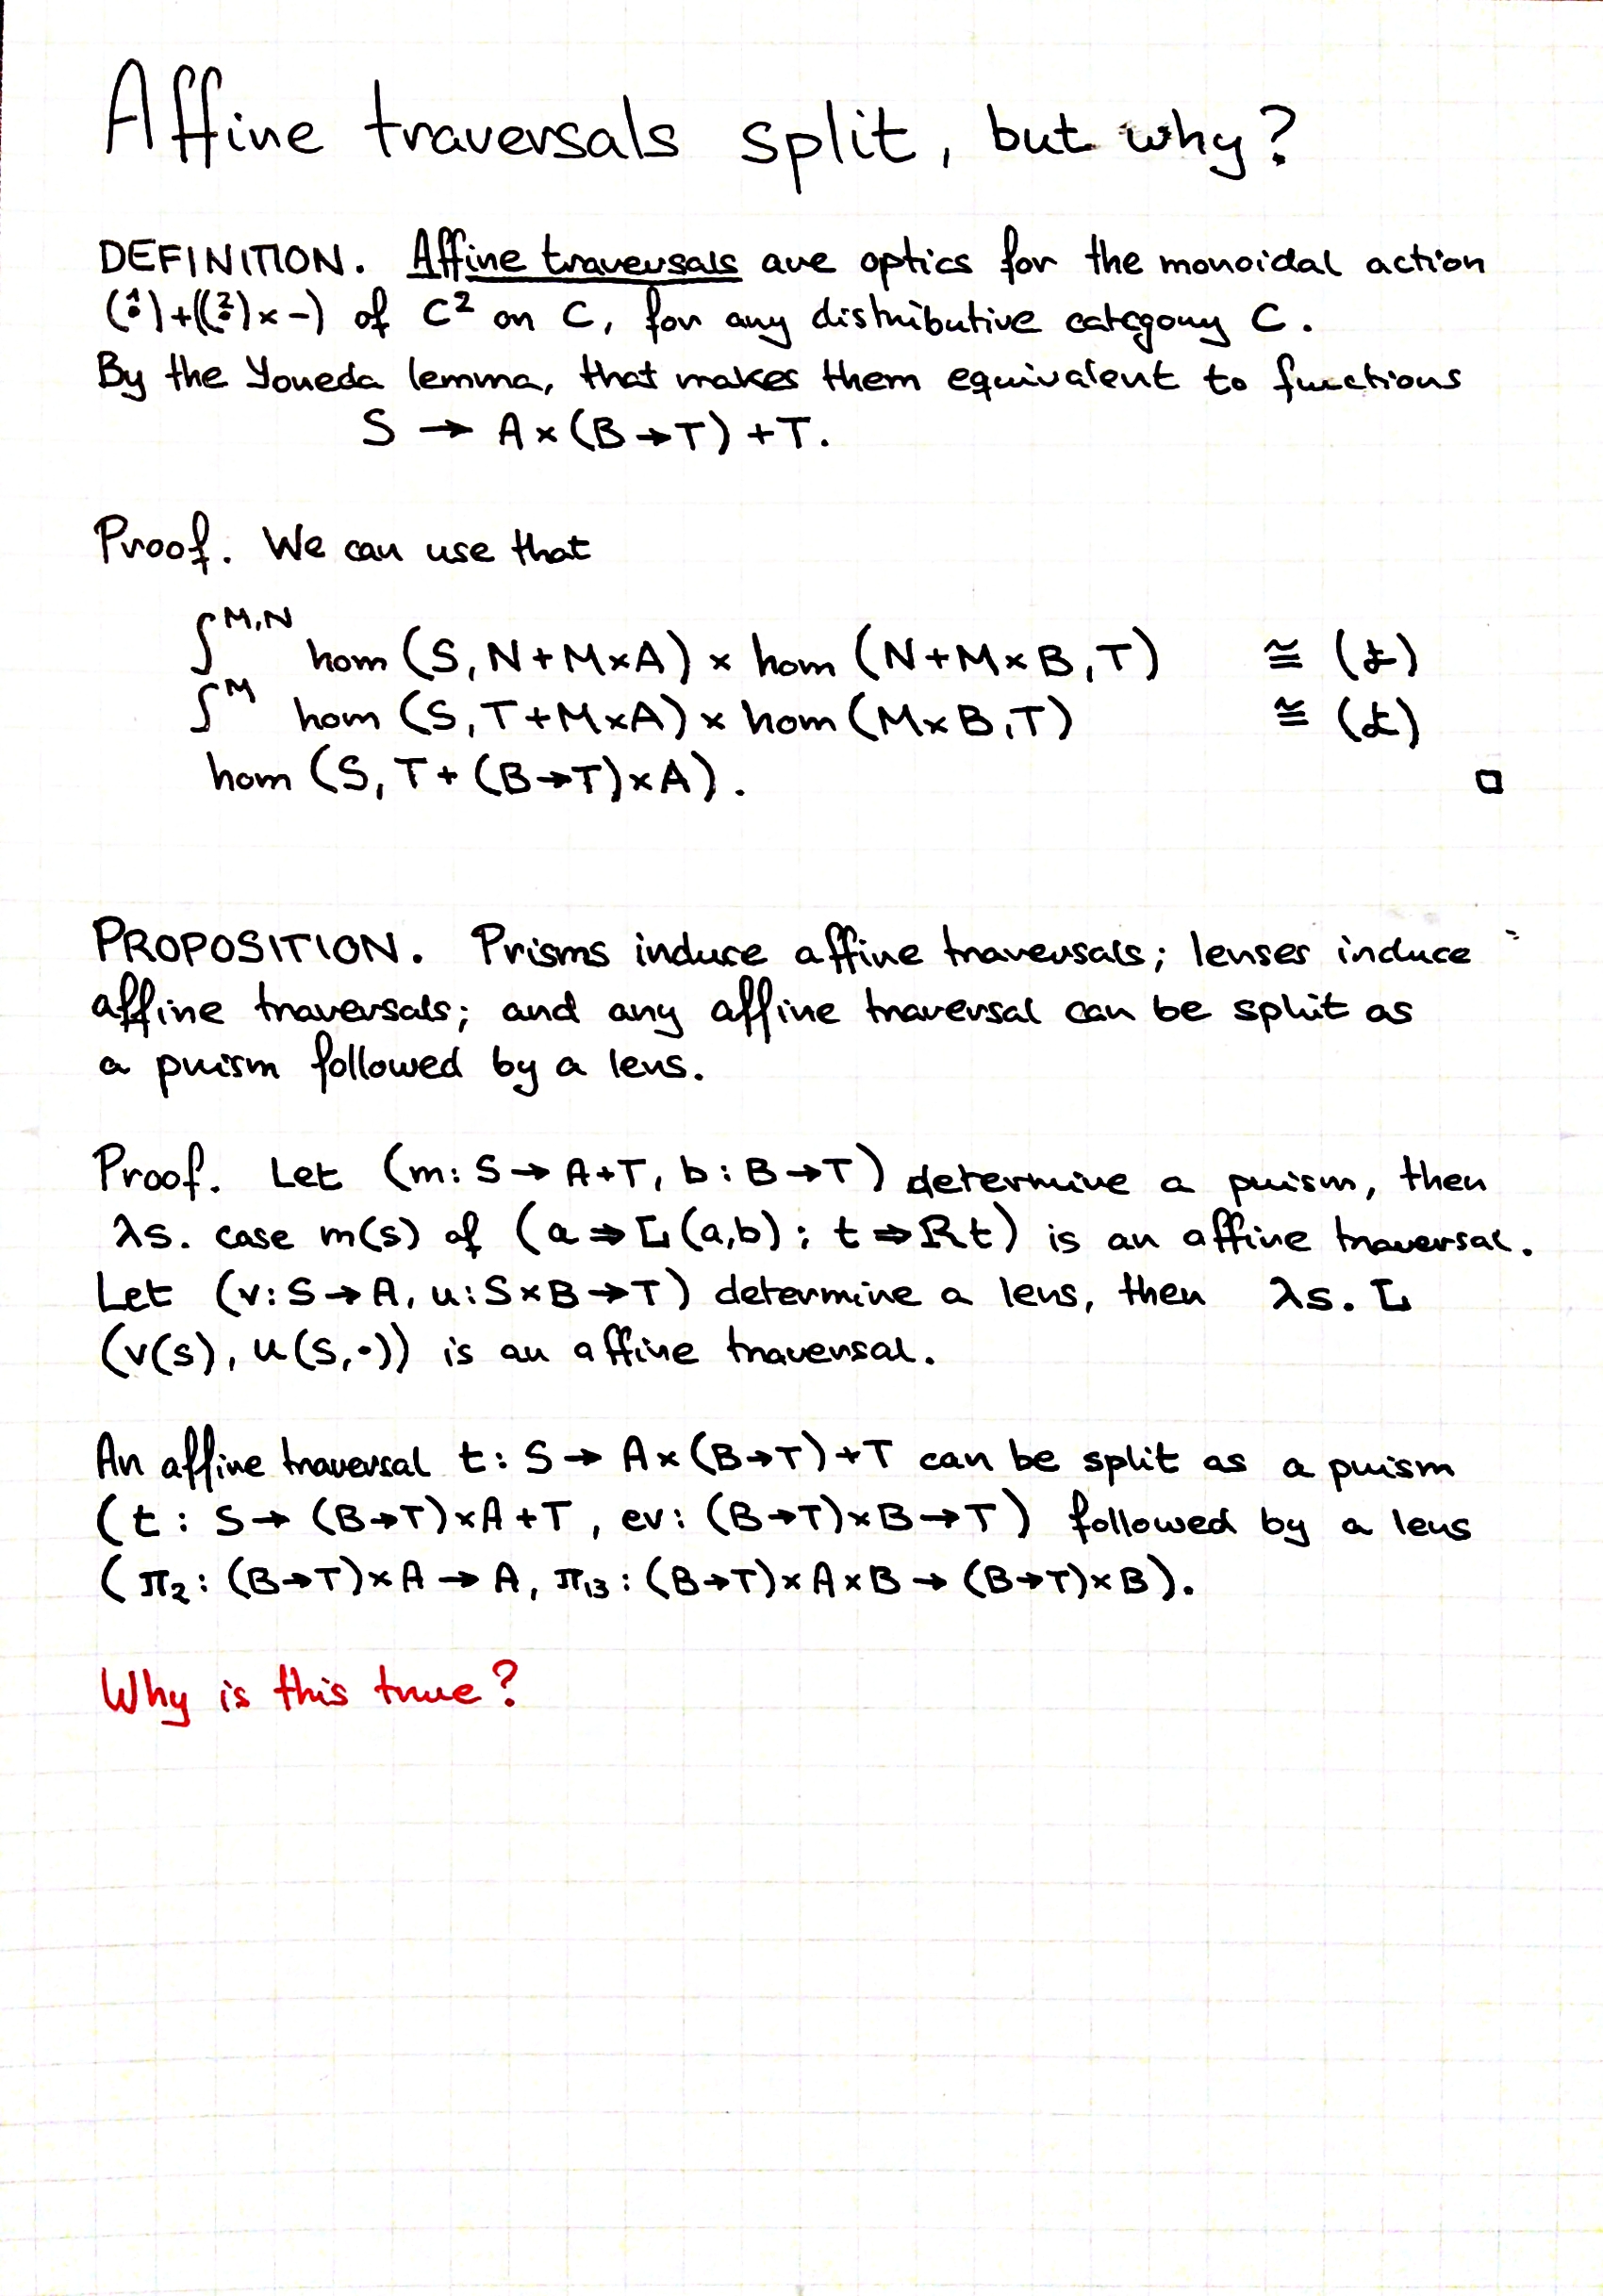 Affine traversals split, but why?
DEFINITION. Affine traversals are optics for the monoidal action
(¹₀)+((²₀)×−) of C² on C, for any distributive category C.
By the Yoneda lemma, that makes them equivalent to functions
S → A×(B→T)+T.
Proof. We can use that
∫^{M,N} hom (S, N+M×A) × hom (N+M×B, T) ≅ (よ)
∫^M hom (S, T+M×A) × hom (M×B, T) ≅ (よ)
hom (S, T+(B→T)×A). □
PROPOSITION. Prisms induce affine traversals; lenses induce
affine traversals; and any affine traversal can be split as
a prism followed by a lens.
Proof. Let (m: S→A+T, b: B→T) determine a prism, then
λs. case m(s) of (a⇒L(a,b); t⇒Rt) is an affine traversal.
Let (v: S→A, u: S×B→T) determine a lens, then λs. L
(v(s), u(s,•)) is an affine traversal.
An affine traversal t: S→ A×(B→T)+T can be split as a prism
(t: S→ (B→T)×A+T, ev: (B→T)×B→T) followed by a lens
(π₂: (B→T)×A→A, π₁₃: (B→T)×A×B→ (B→T)×B).
Why is this true?